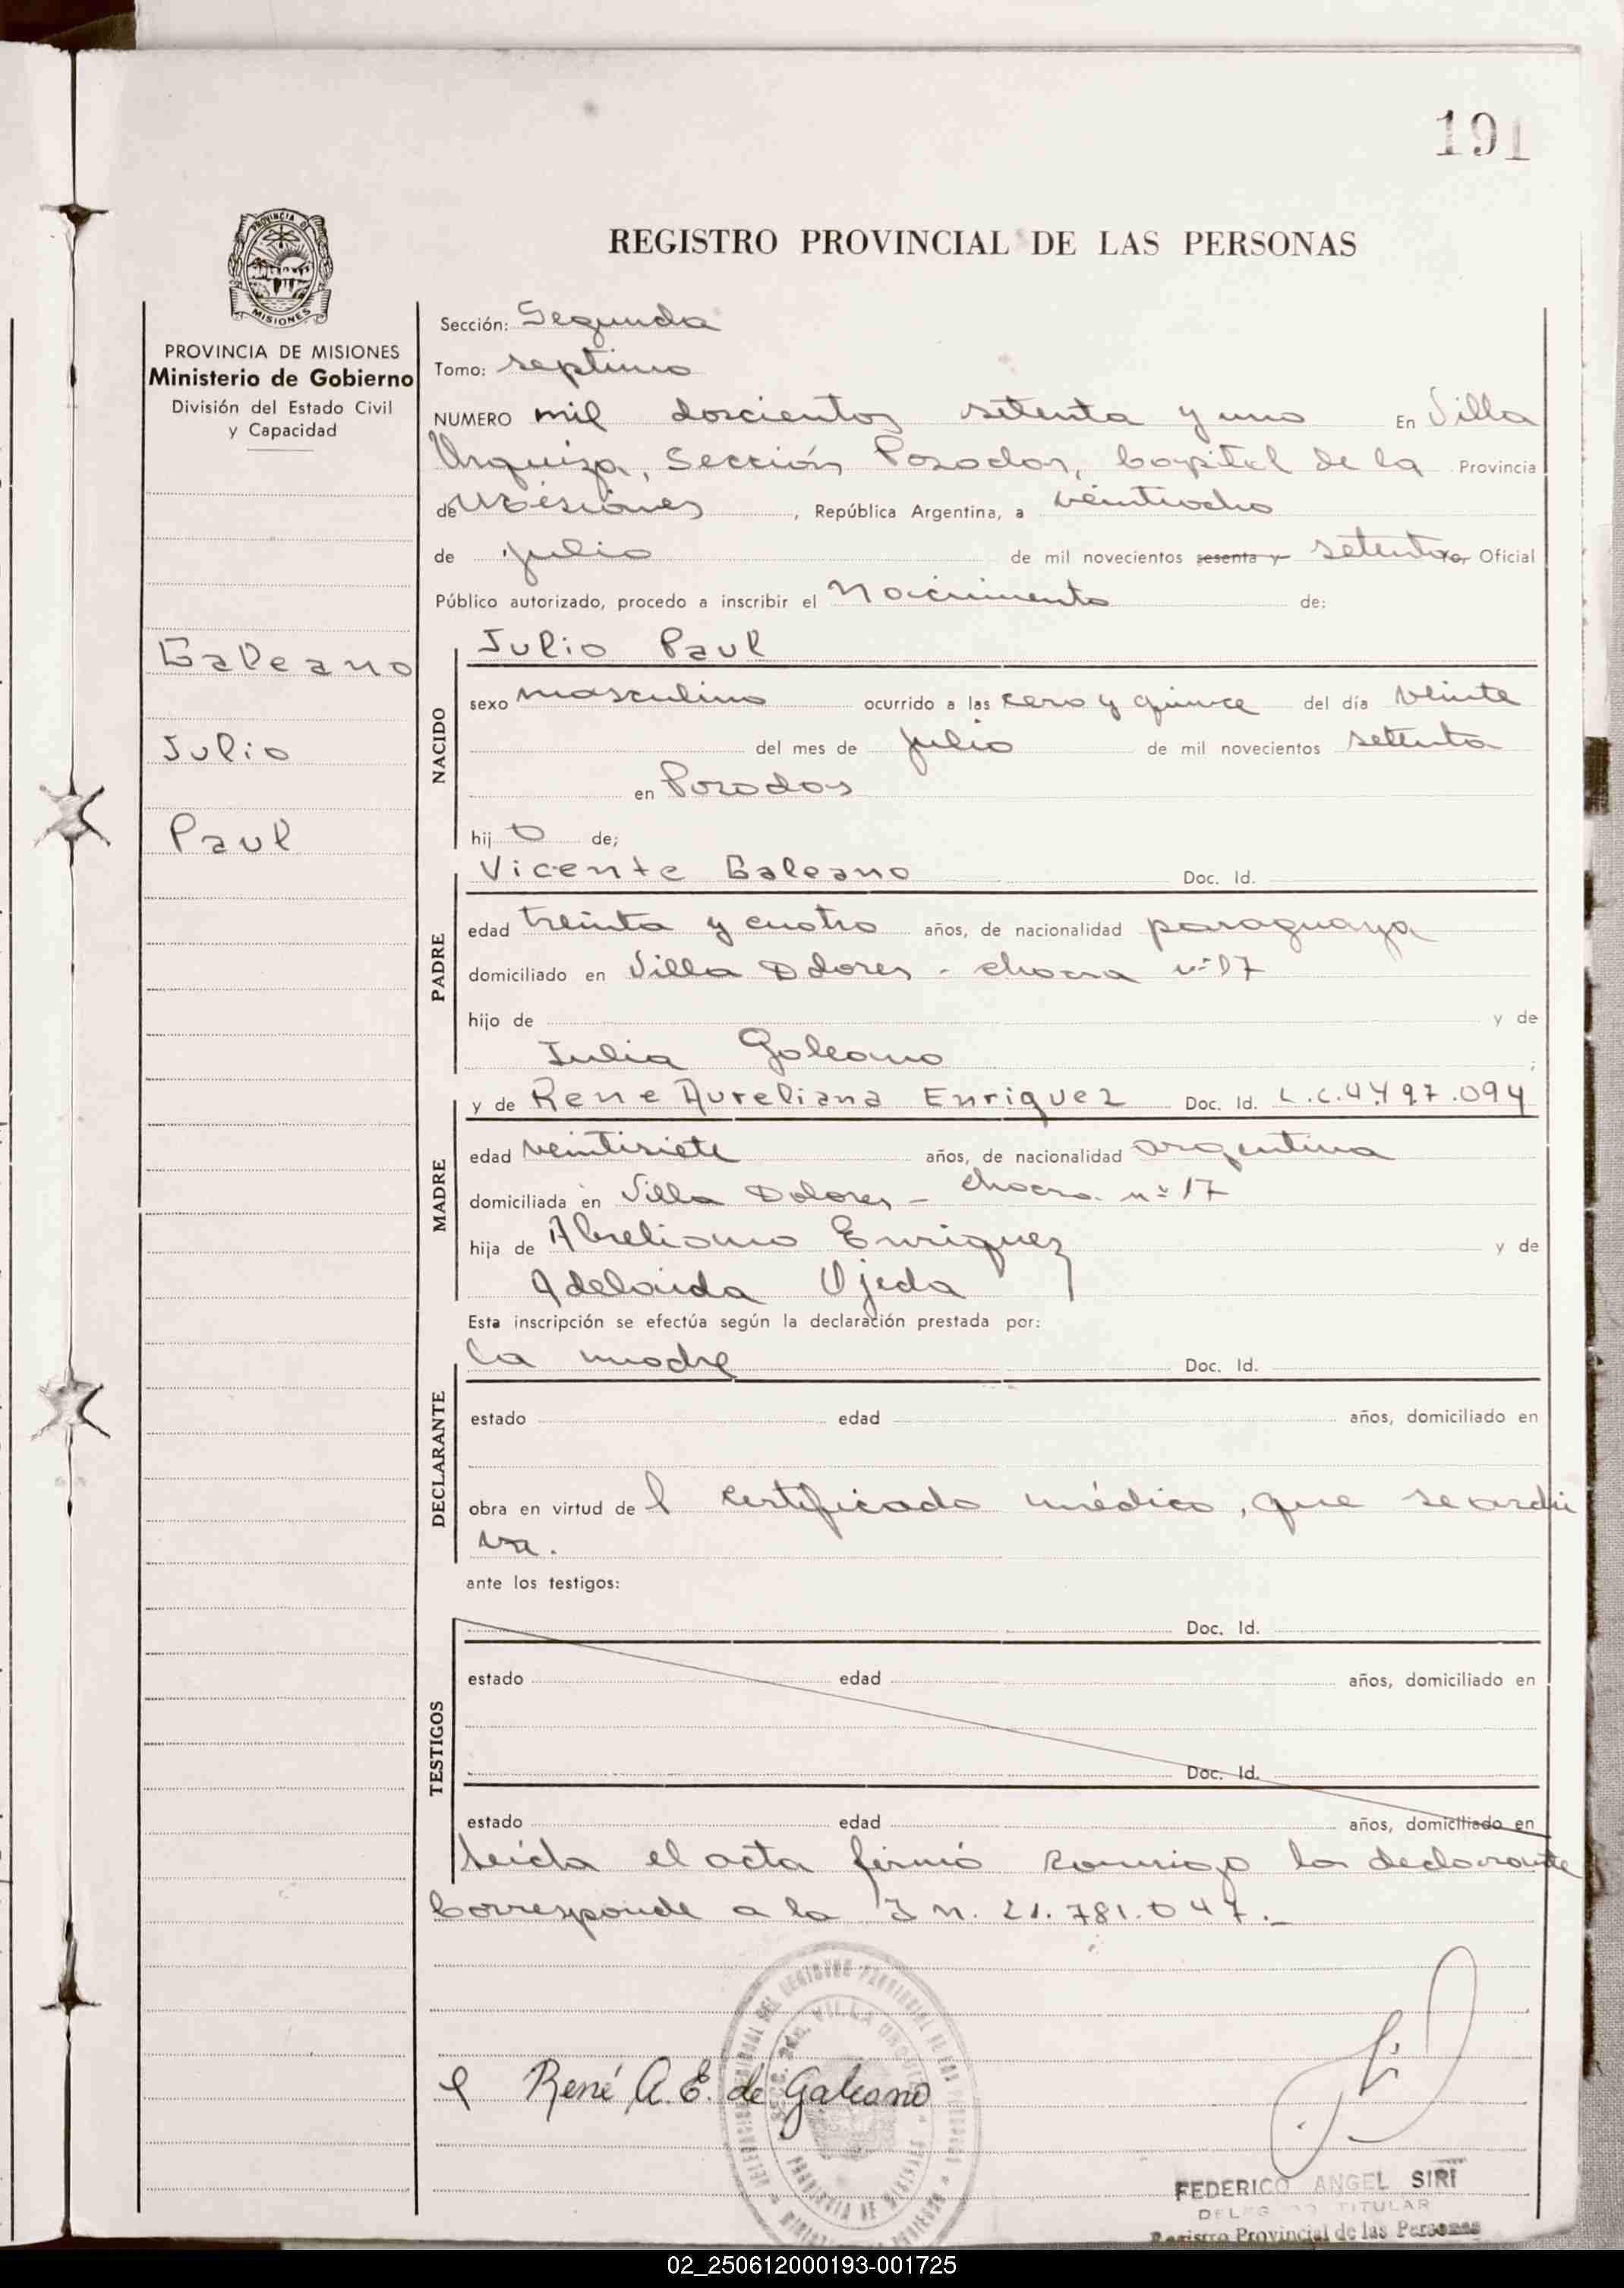 191
REGISTRO PROVINCIAL DE LAS PERSONAS
PROVINCIA DE MISIONES
Ministerio de Gobierno
División del Estado Civil
y Capacidad
Galeano
Julio
Paul
Sección: Segunda
Tomo: septimo
NUMERO mil doscientos setenta y uno En Villa
Urquiza, Sección Posadas, Capital de la Provincia
de Misiones, República Argentina, a veintiocho
de julio de mil novecientos sesenta y setenta yo, Oficial
Público autorizado, procedo a inscribir el Nacimiento de:
NACIDO
Julio Paul
sexo masculino ocurrido a las cero y quince del día veinte
del mes de julio de mil novecientos setenta
en Posadas
hijo de;
PADRE
Vicente Galeano Doc. Id.
edad treinta y cuatro años, de nacionalidad paraguaya
domiciliado en Villa Dolores - chacra nº 17
hijo de y de
Julia Galeano ;
MADRE
y de Rene Aureliana Enriquez Doc. Id. L.C. 4.797.094
edad veintisiete años, de nacionalidad argentina
domiciliada en Villa Dolores - chacra nº 17
hija de Abreliano Enriquez y de
Adelaida Ojeda
Esta inscripción se efectúa según la declaración prestada por:
DECLARANTE
la madre Doc. Id.
estado edad años, domiciliado en
obra en virtud de l certificado médico, que se archi
va.
ante los testigos:
TESTIGOS
Doc. Id.
estado edad años, domiciliado en
Doc. Id.
estado edad años, domiciliado en
leída el acta firmó conmigo la declarante
Corresponde a la I n. 21.781.047.-
René A. E. de Galeano
FEDERICO ANGEL SIRI
DELEGADO TITULAR
Registro Provincial de las Personas
02_250612000193-001725